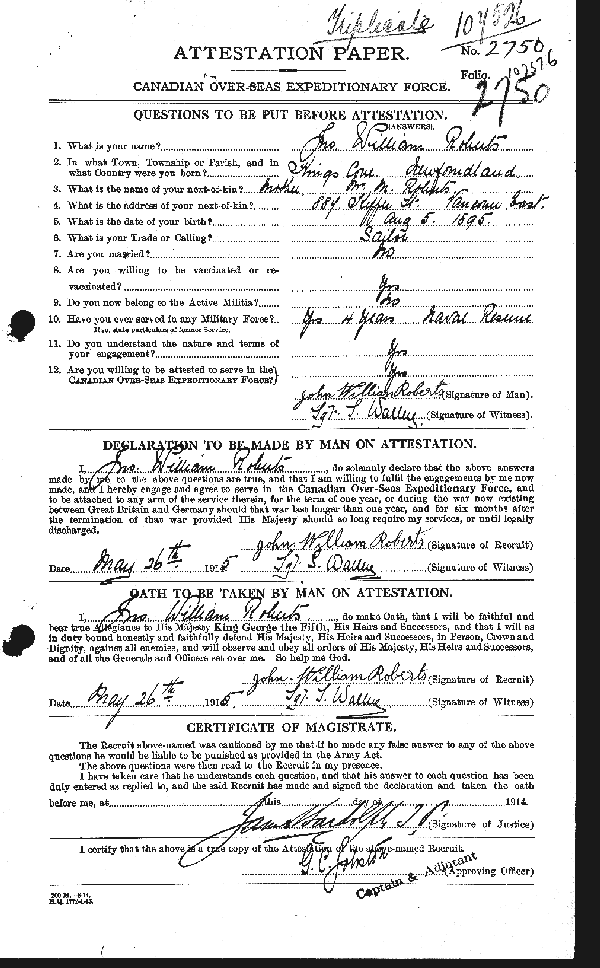 Triplicate
107526
ATTESTATION PAPER.
No. 2750
Folio. 107526
CANADIAN OVER-SEAS EXPEDITIONARY FORCE.
2750
QUESTIONS TO BE PUT BEFORE ATTESTATION.
(ANSWERS).
1. What is your name? Jno William Roberts
2. In what Town, Township or Parish, and in
what Country were you born? Kings Cove Newfoundland
3. What is the name of your next-of-kin? Mother Mrs M. Roberts
4. What is the address of your next-of-kin? 889 St. Vancouver East.
5. What is the date of your birth? Aug 5. 1895.
6. What is your Trade or Calling? Sailor
7. Are you married? No
8. Are you willing to be vaccinated or re-
vaccinated? Yes
9. Do you now belong to the Active Militia? No
10. Have you ever served in any Military Force? Yes 4 Years Naval Reserve
If so, state particulars of former Service.
11. Do you understand the nature and terms of
your engagement? Yes
12. Are you willing to be attested to serve in the Yes
CANADIAN OVER-SEAS EXPEDITIONARY FORCE?
John William Roberts (Signature of Man).
Sgt. S. (Signature of Witness).
DECLARATION TO BE MADE BY MAN ON ATTESTATION.
I, Jno William Roberts, do solemnly declare that the above answers
made by me to the above questions are true, and that I am willing to fulfil the engagements by me now
made, and I hereby engage and agree to serve in the Canadian Over-Seas Expeditionary Force, and
to be attached to any arm of the service therein, for the term of one year, or during the war now existing
between Great Britain and Germany should that war last longer than one year, and for six months after
the termination of that war provided His Majesty should so long require my services, or until legally
discharged.
John William Roberts (Signature of Recruit)
Date May 26th 1915 Sgt S. (Signature of Witness)
OATH TO BE TAKEN BY MAN ON ATTESTATION.
I, Jno William Roberts, do make Oath, that I will be faithful and
bear true Allegiance to His Majesty King George the Fifth, His Heirs and Successors, and that I will as
in duty bound honestly and faithfully defend His Majesty, His Heirs and Successors, in Person, Crown and
Dignity, against all enemies, and will observe and obey all orders of His Majesty, His Heirs and Successors,
and of all the Generals and Officers set over me. So help me God.
John William Roberts (Signature of Recruit)
Date May 26th 1915 Sgt S. (Signature of Witness)
CERTIFICATE OF MAGISTRATE.
The Recruit above-named was cautioned by me that if he made any false answer to any of the above
questions he would be liable to be punished as provided in the Army Act.
The above questions were then read to the Recruit in my presence.
I have taken care that he understands each question, and that his answer to each question has been
duly entered as replied to, and the said Recruit has made and signed the declaration and taken the oath
before me, at this day of 1914.
(Signature of Justice)
I certify that the above is a true copy of the Attestation of the above-named Recruit.
(Approving Officer)
Captain & Adjutant